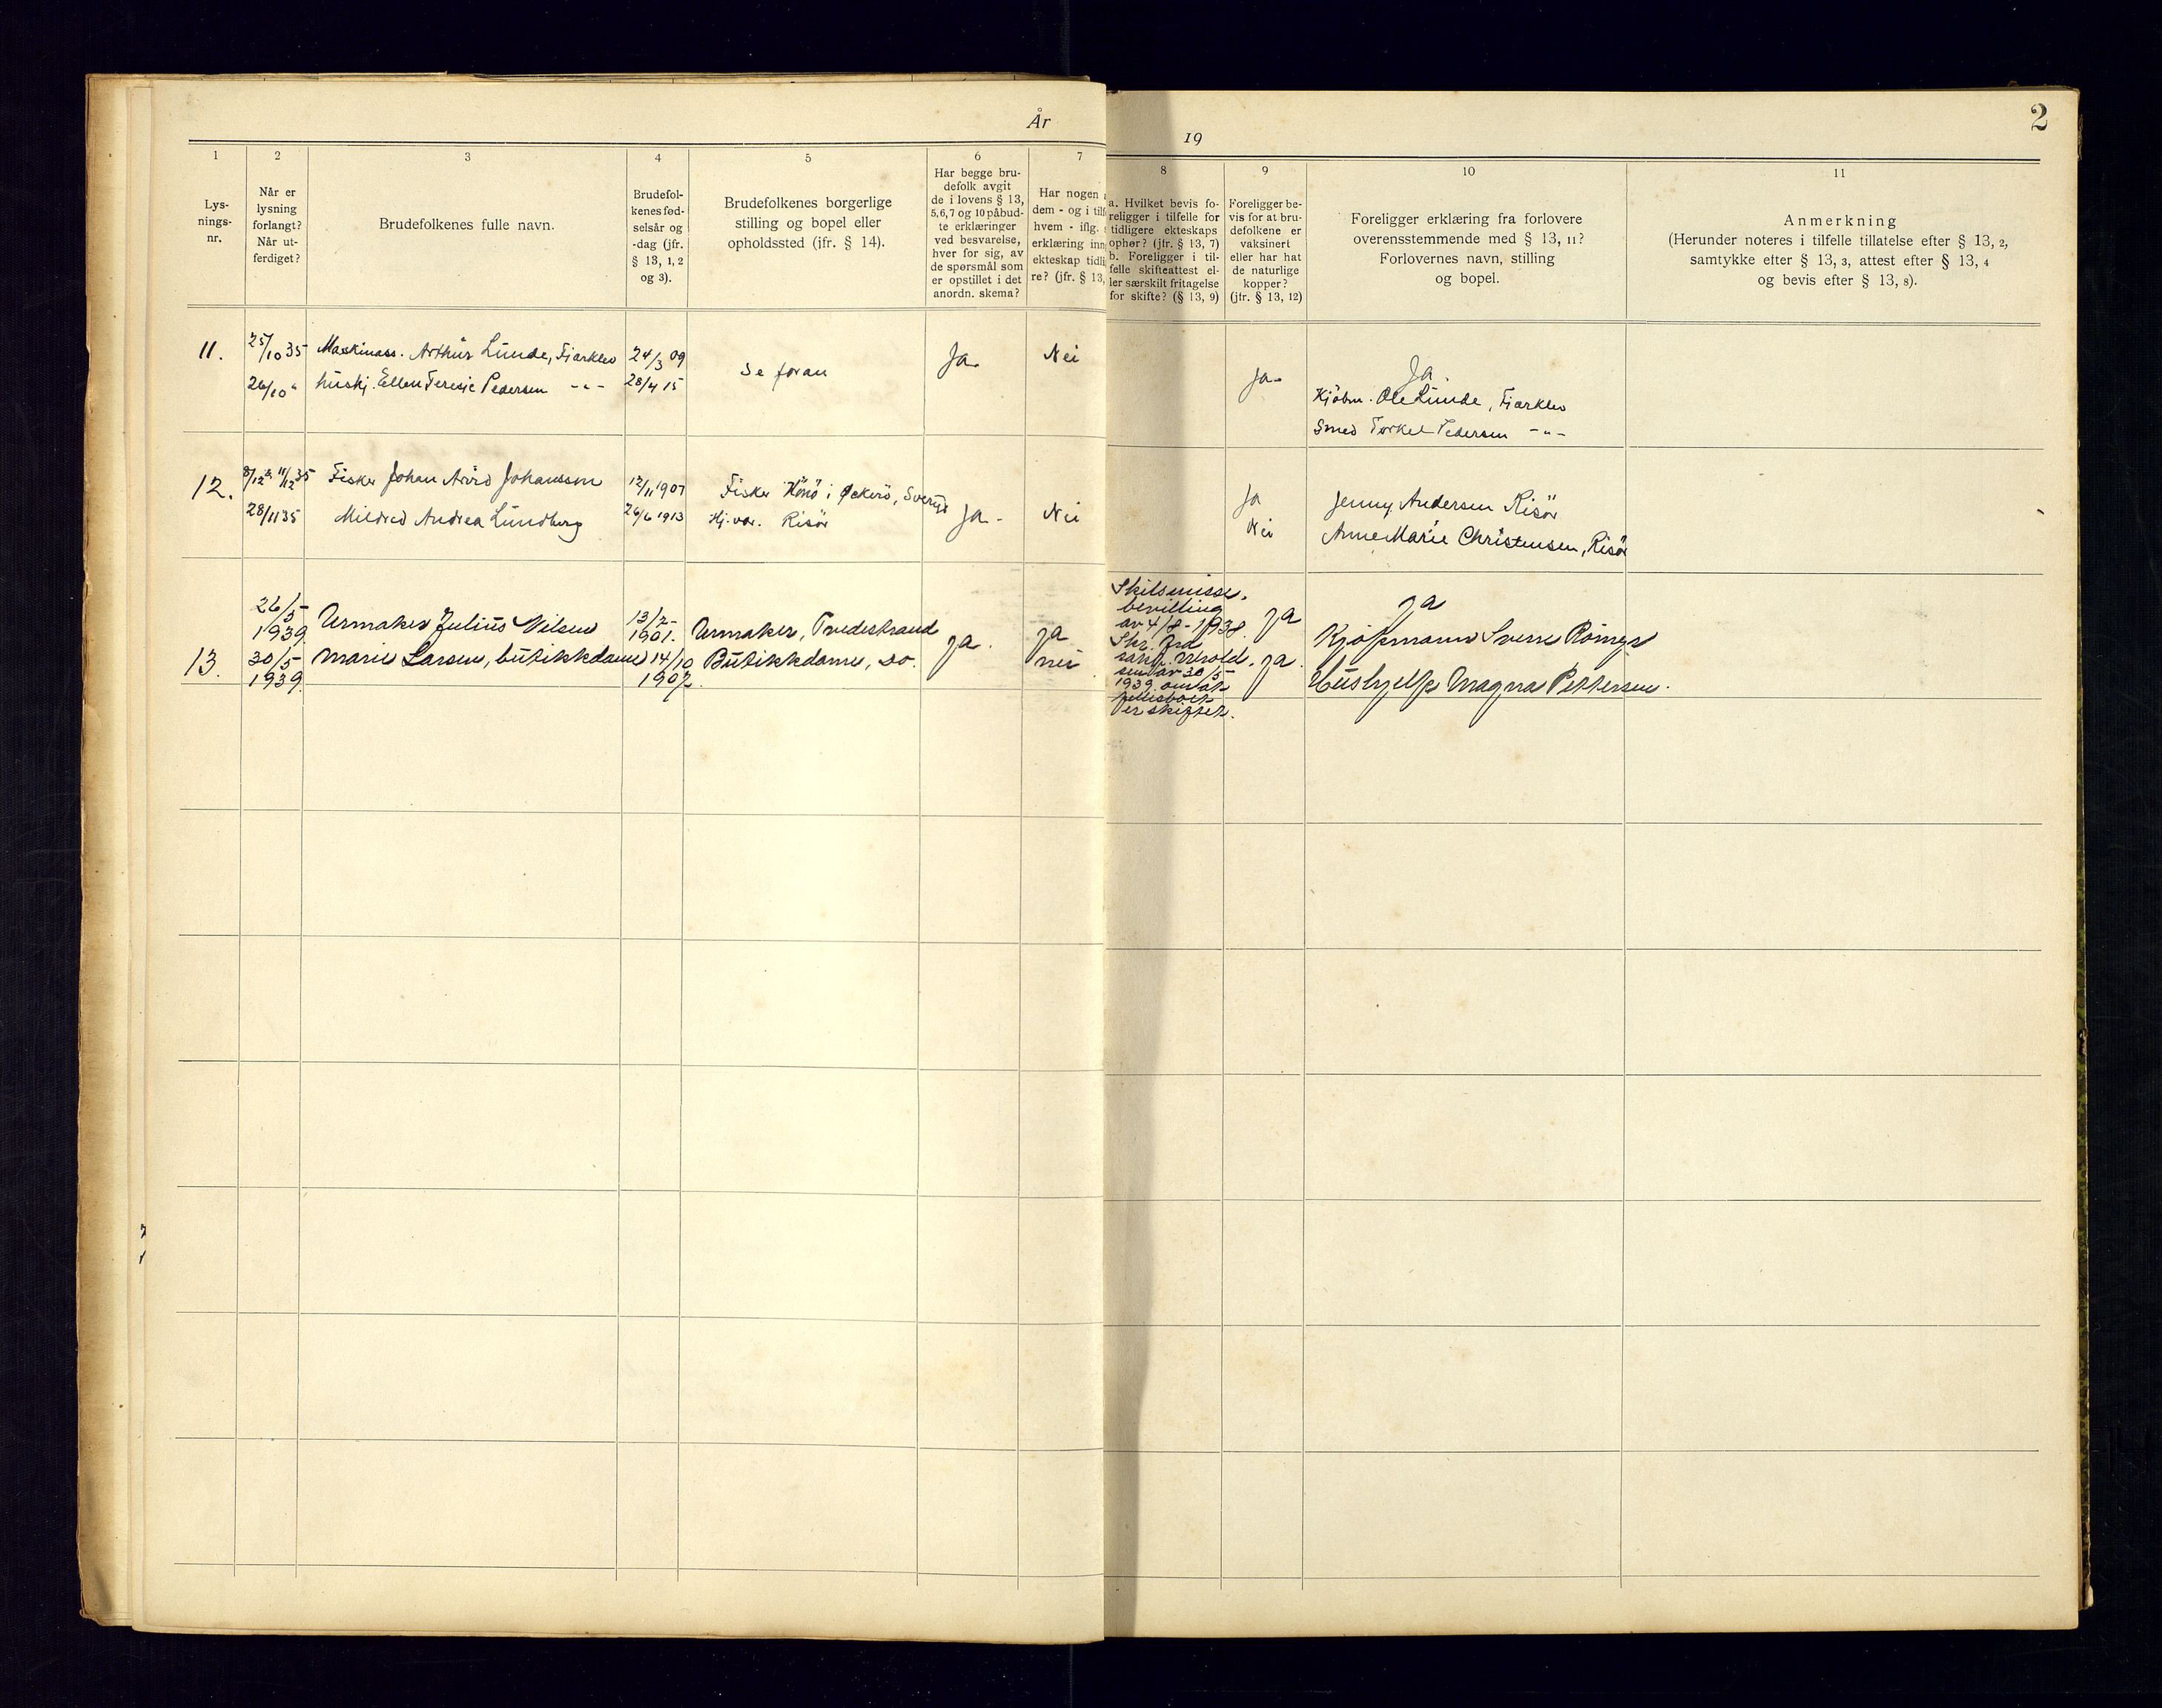 År
19
2
1
2
3
4
5
6
7
8
9
10
11
Lys-
nings-
nr.
Når er
lysning
forlangt?
Når ut-
ferdiget?
Brudefolkenes fulle navn.
Brudefol-
kenes fød-
selsår og
-dag (jfr.
§ 13, 1, 2
og 3).
Brudefolkenes borgerlige
stilling og bopel eller
opholdssted (jfr. § 14).
Har begge bru-
defolk avgit
de i lovens § 13,
5, 6, 7 og 10 påbud-
te erklæringer
ved besvarelse,
hver for sig, av
de spørsmål som
er opstillet i det
anordn. skema?
Har nogen
dem - og i tilf
hvem - iflg.
erklæring inn
ekteskap tidli
re? (jfr. § 13,
a. Hvilket bevis fo-
religger i tilfelle for
tidligere ekteskaps
ophør? (jfr. § 13, 7)
b. Foreligger i til-
felle skifteattest el-
ler særskilt fritagelse
for skifte? (§ 13, 9)
Foreligger be-
vis for at bru-
defolkene er
vaksinert
eller har hat
de naturlige
kopper?
(jfr. § 13, 12)
Foreligger erklæring fra forlovere
overensstemmende med § 13, 11?
Forlovernes navn, stilling
og bopel.
Anmerkning
(Herunder noteres i tilfelle tillatelse efter § 13, 2,
samtykke efter § 13, 3, attest efter § 13, 4
og bevis efter § 13, 8).
11.
25/10 35
26/10 "
Maskinass. Arthur Lunde, Fiarklev
huskj. Ellen Teresie Pedersen -"-
24/3 09
28/4 15
Se foran
Ja
Nei
Ja
Ja.
Kjöbm. Ole Lunde, Fiarklev
Smed Torkel Pedersen -"-
12.
8/12 & 11/12 35
28/11 35
Fisker Johan Arvid Johansson
Mildred Andrea Lundberg
12/11 1907
26/6 1913
Fisker Hönö i Öckerö, Sverige
Hj. vær. Risör
Ja -
Nei
Ja
Nei
Jenny Andersen Risör
Anne Marie Christensen, Risör
13.
26/5
1939.
30/5
1939.
Urmaker Julius Nilsen
Marie Larsen, butikkdame
13/2
1901.
14/10
1907.
Urmaker, Tvedestrand
Butikkdame, do.
Ja.
Ja
nei.
Skilsmisse-
bevilling
av 4/8-1938.
Skr. fra
sakf.
sen av 30/5-
1939 om at
fellesboet
er skiftet.
Ja
Ja.
Ja
Kjøpmann Sverre
Hushjelp Magna Pettersen.